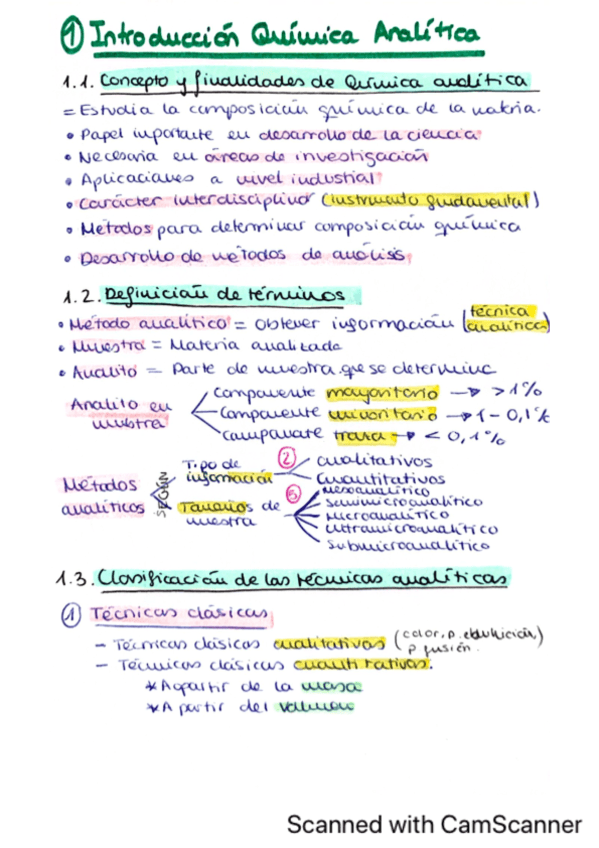 ① Introducción Química Analítica
1.1. Concepto y finalidades de Química analítica
= Estudia la composición química de la materia.
• Papel importante en desarrollo de la ciencia
• Necesaria en áreas de investigación
• Aplicaciones a nivel industrial
• Carácter interdisciplinar (instrumento fundamental)
• Métodos para determinar composición química
• Desarrollo de métodos de análisis
1.2. Definición de términos
• Método analítico = obtener información (técnica analítica)
• Muestra = Materia analizada
• Analito = Parte de muestra que se determina
Analito en muestra
Componente mayoritario → > 1%
Componente minoritario → 1 - 0,1%
Componente traza → < 0,1%
Métodos analíticos SEGÚN
Tipo de información ②
cualitativos
Cuantitativos
Tamaños de muestra ⑤
Mesoanalítico
Semimicroanalítico
Microanalítico
Ultramicroanalítico
Submicroanalítico
1.3. Clasificación de las técnicas analíticas
① Técnicas clásicas
- Técnicas clásicas cualitativas (color, p. ebullición, p fusión.)
- Técnicas clásicas cuantitativas.
* A partir de la masa
* A partir del volumen
Scanned with CamScanner